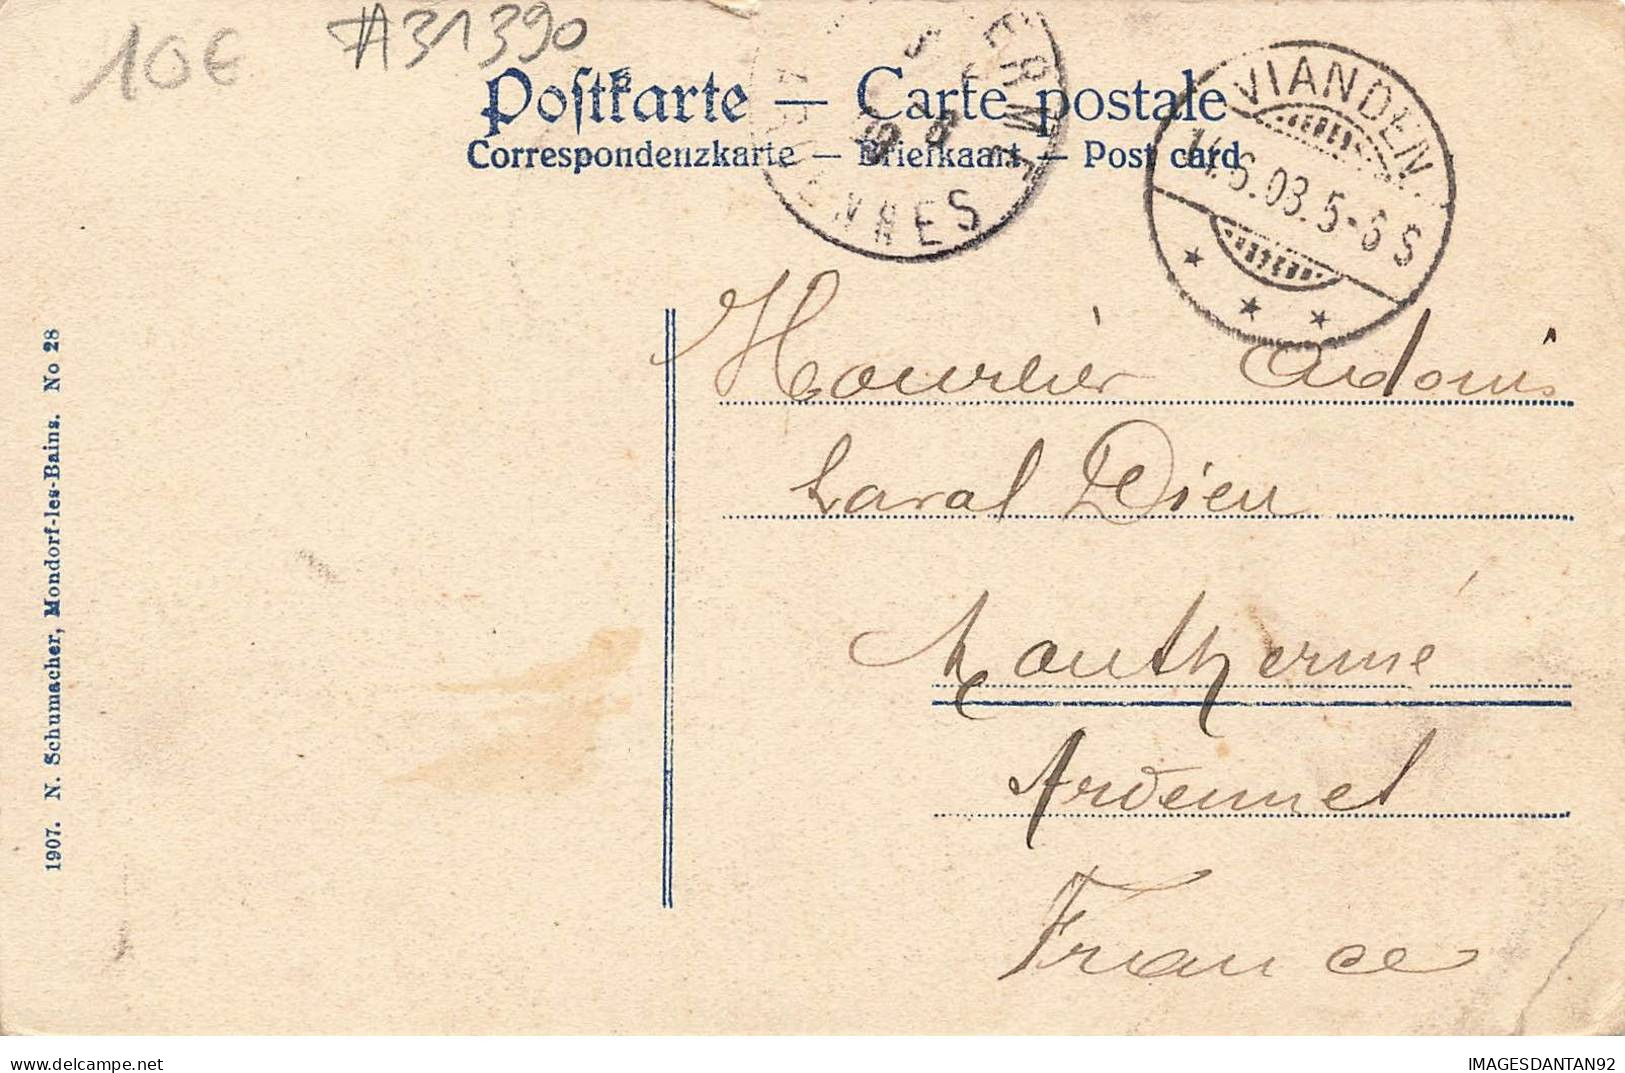 10€ #31390
Postkarte — Carte postale
Correspondenzkarte — Briefkaart — Post card
ERMÉ
ARDENNES
VIANDEN
14.6.08. 5-6 S
Hourlier Adonis
Laval Dieu
Monthermé
Ardennes
France
1907. N. Schumacher, Mondorf-les-Bains. No 28
https://www.delcampe.net
IMAGESDANTAN92